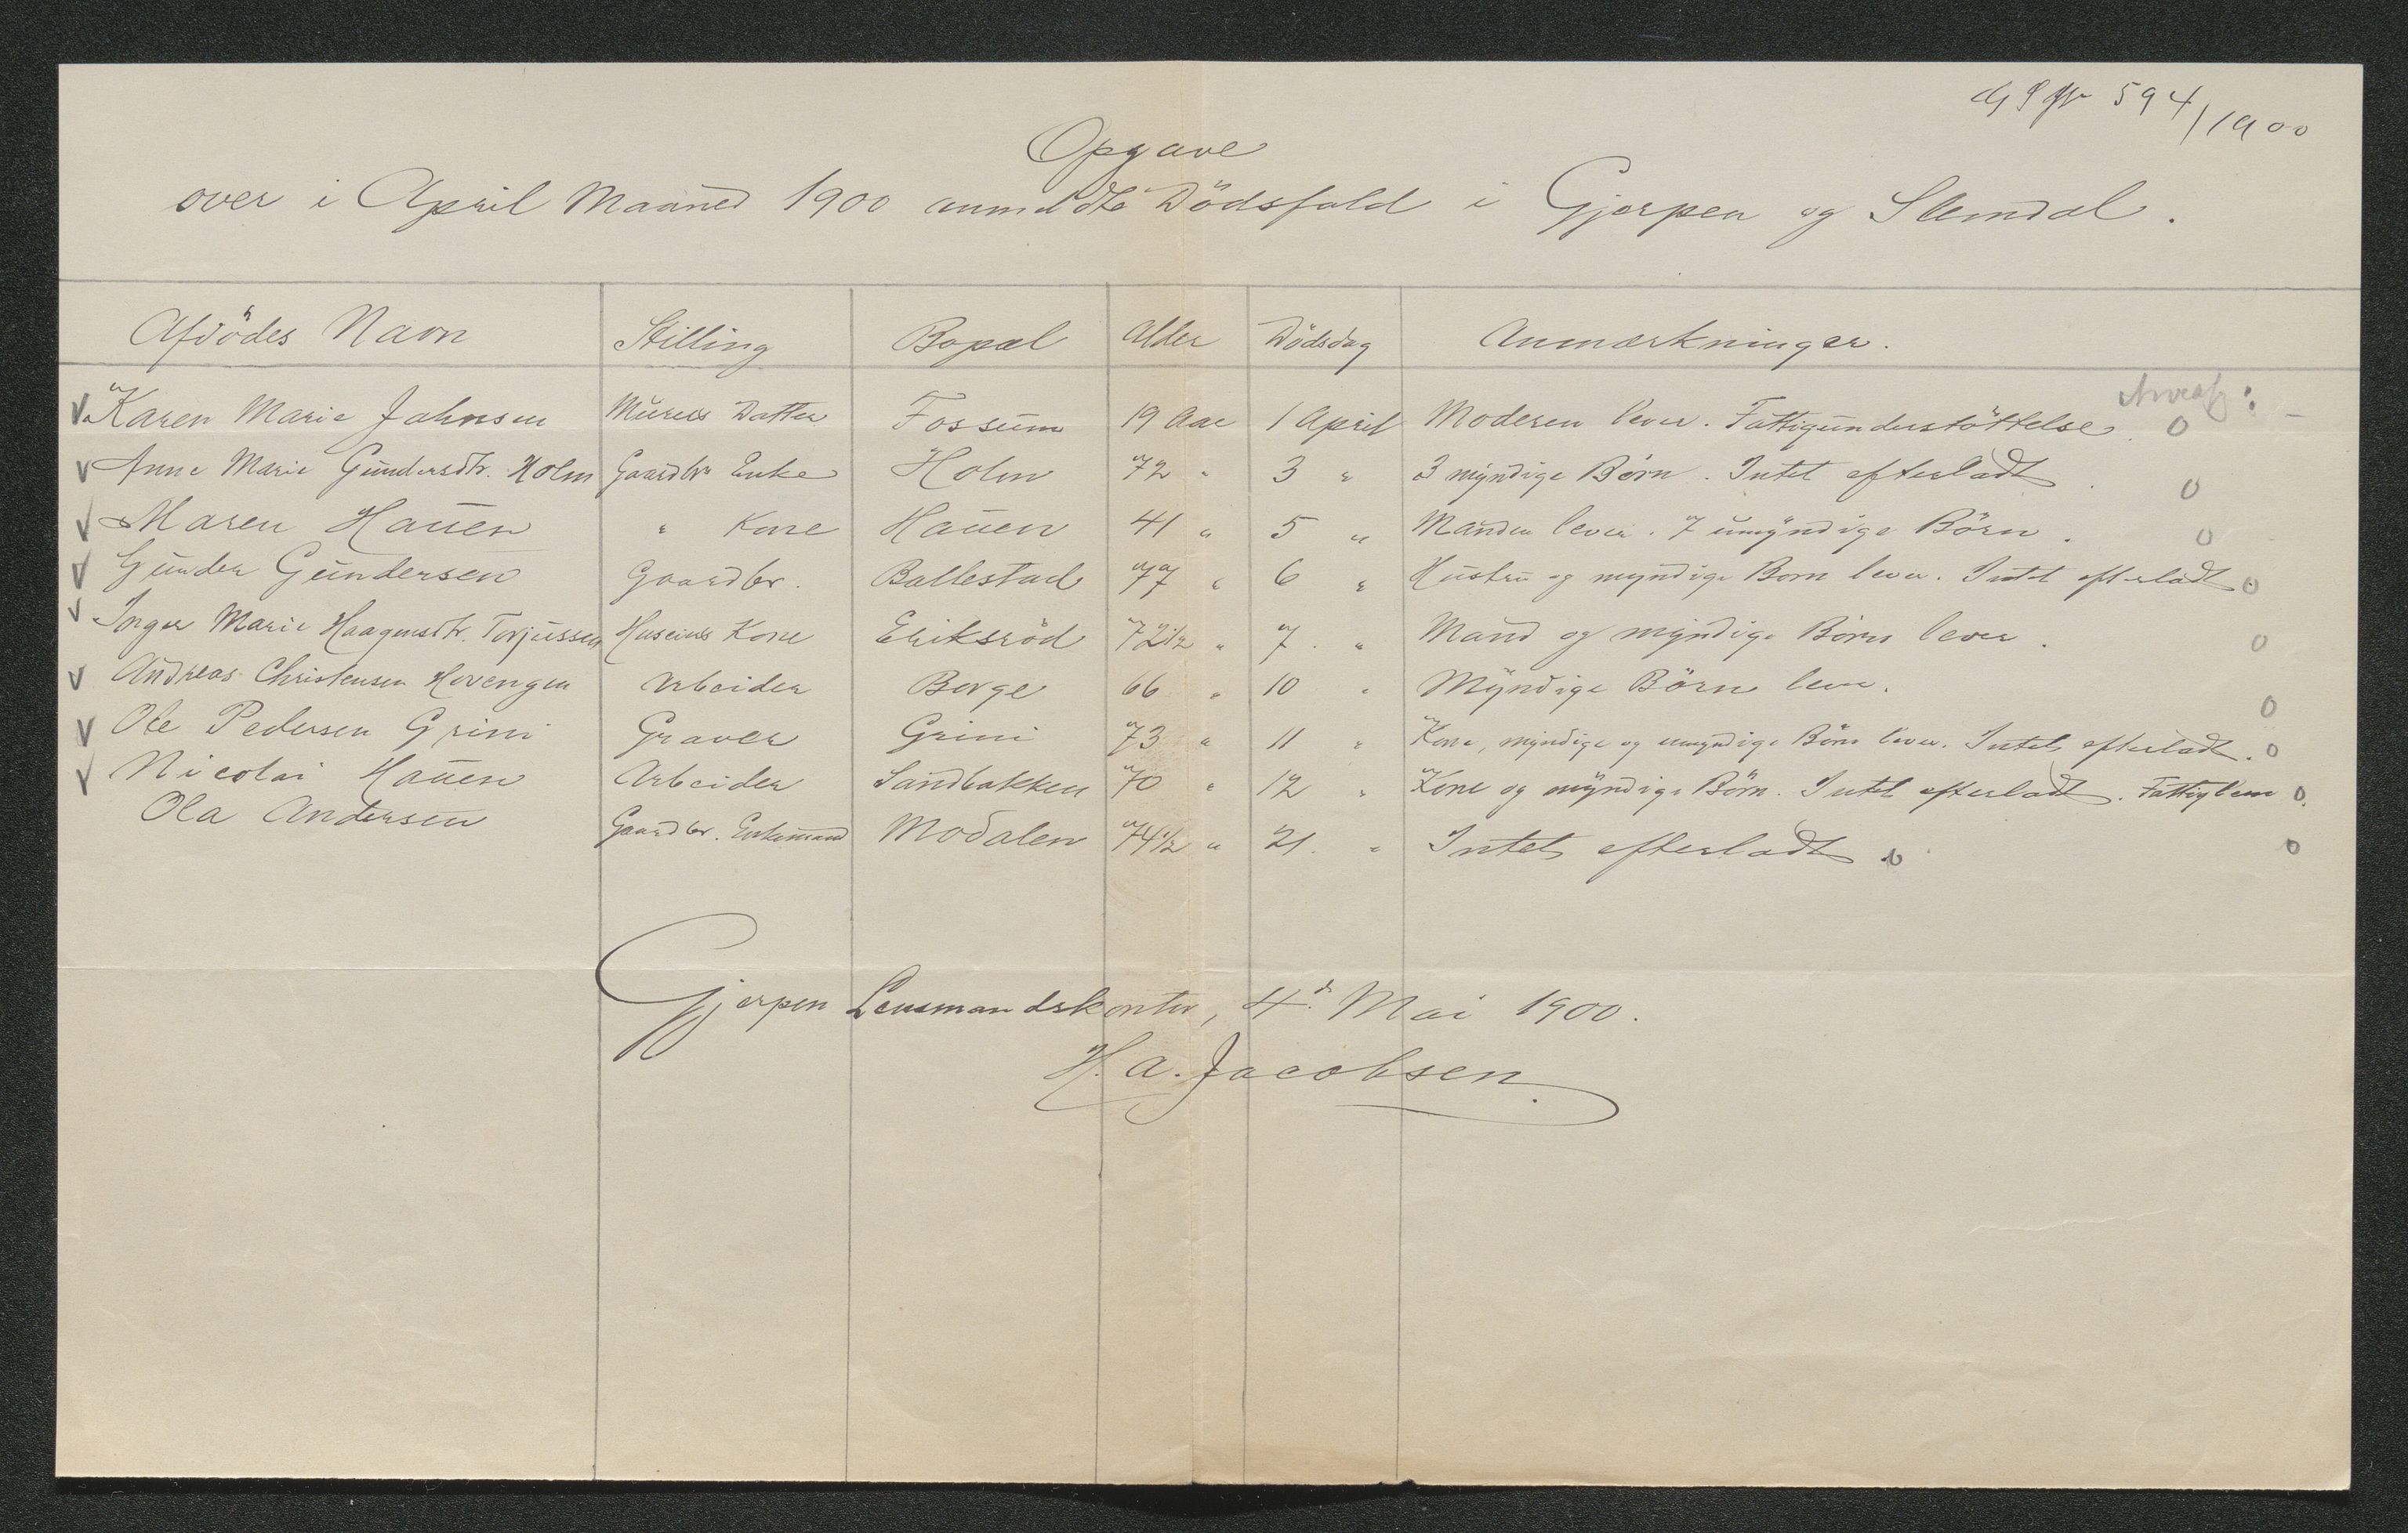 594/1900
Opgave
over i April Maaned 1900 anmeldte Dödsfald i Gjerpen og Slemdal.
Afdödes Navn Stilling Bopæl Alder Dödsdag Anmærkninger.
Karen Marie Jahnsen Murers Datter Fossum 19 Aar 1 April Moderen lever. Fattigunderstöttelse. 0
Anne Marie Gundersdtr. Holm Gaardbrs Enke Holm 72 " 3 " 3 myndige Börn. Intet efterladt. 0
Maren Hauen " Kone Hauen 41 " 5 " Manden lever. 7 umyndige Börn. 0
Gunder Gundersen Gaardbr. Ballestad 77 " 6 " Hustru og myndige Born lever. Intet efterladt. 0
Inger Marie Haagensdtr. Torjussen Huseiers Kone Eriksröd 72 1/2 " 7. " Mand og myndige Börn lever. 0
Andreas Christensen Hovengen Arbeider Borge 66 " 10 " Myndige Börn lever. 0
Ole Pedersen Grini Graver Grini 73 " 11 " Kone, myndige og umyndige Börn lever. Intet efterladt. 0
Nicolai Hauen Arbeider Sandbakken 70 " 12 " Kone og myndige Börn. Intet efterladt. Fattiglem 0.
Ola Andersen Gaardbr. Enkemand Modalen 74 1/2 " 21. " Intet efterladt. 0
Gjerpen Lensmandskontor, 4d. Mai 1900.
H. A. Jacobsen.